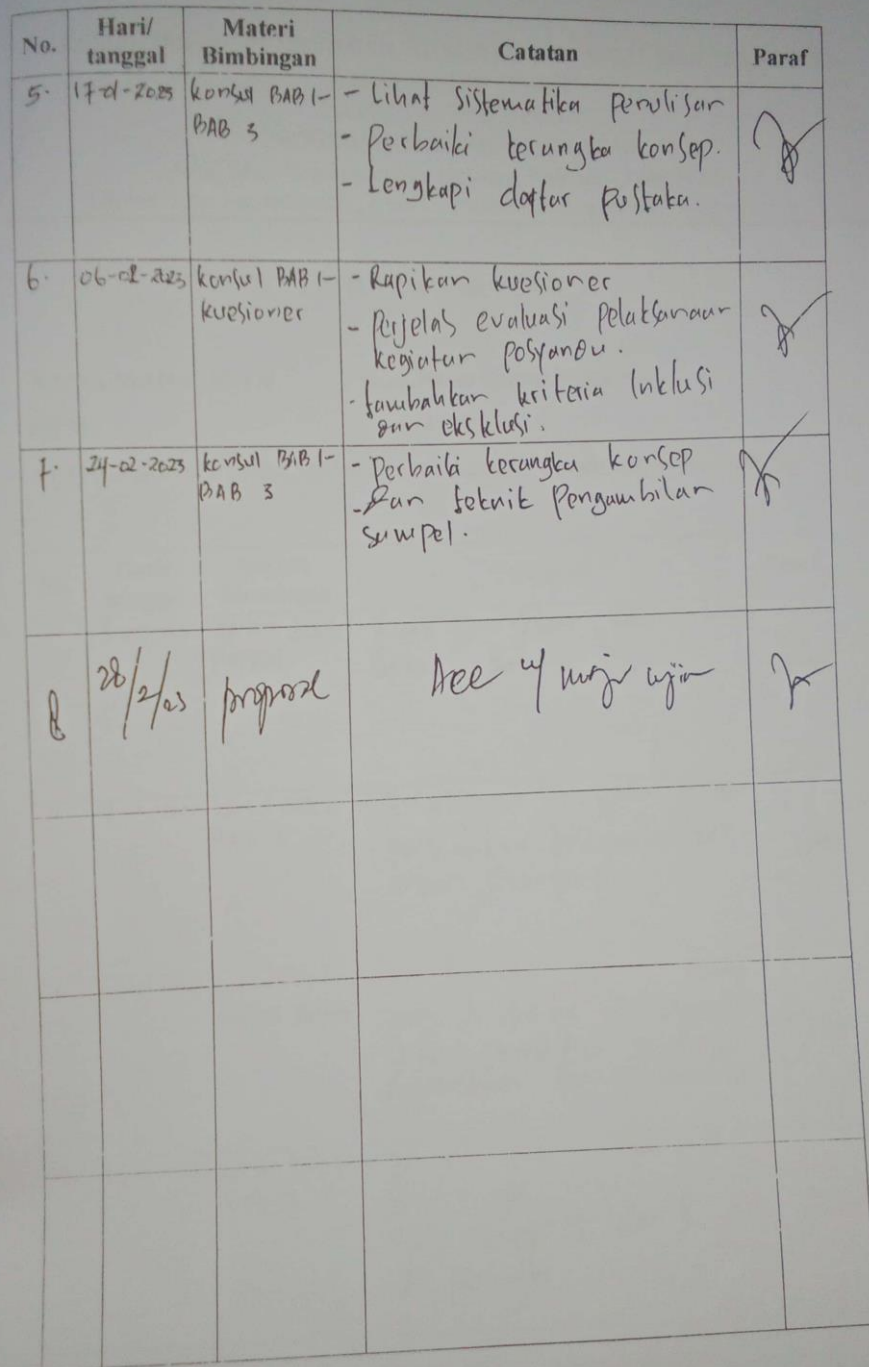 No. Hari/ tanggal Materi Bimbingan Catatan Paraf
5. 17-01-2023 konsul BAB 1- - Lihat Sistematika penulisan
BAB 3 - Perbaiki kerangka konsep.
- Lengkapi daftar pustaka.
6. 06-02-2023 konsul BAB 1- - Rapikan kuesioner
kuesioner - Perjelas evaluasi pelaksanaan
kegiatan posyandu.
- tambahkan kriteria Inklusi
dan eksklusi.
7. 24-02-2023 konsul BAB 1- - Perbaiki kerangka konsep
BAB 3 - dan teknik pengambilan
sampel.
8 28/2/23 proposal Acc u/ maju ujian